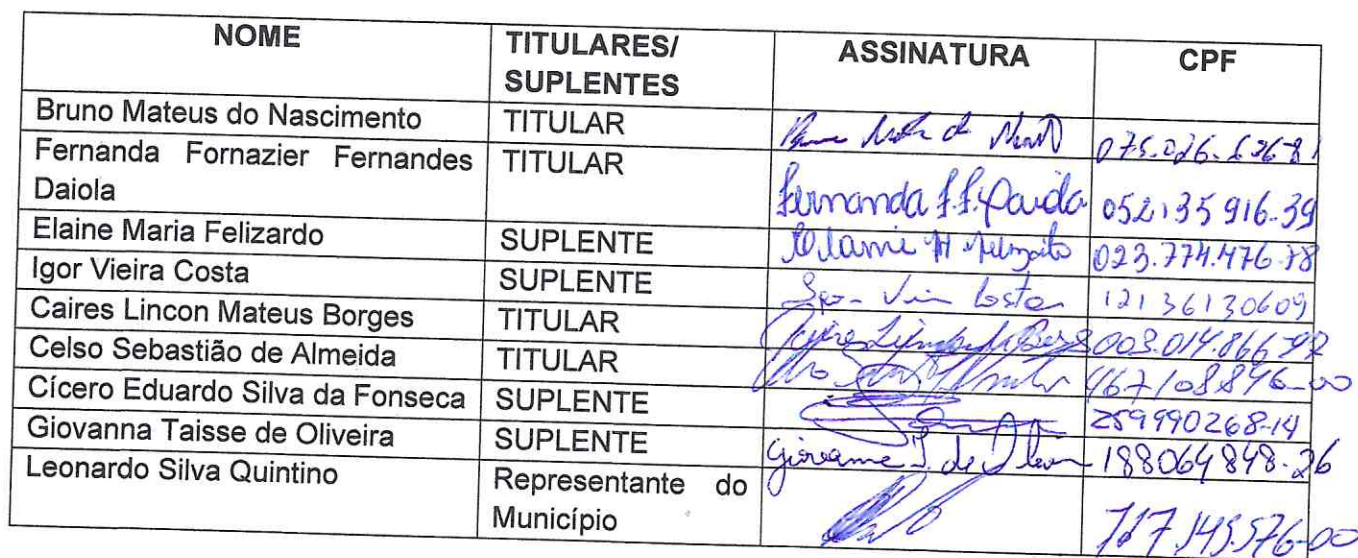 NOME TITULARES/ SUPLENTES ASSINATURA CPF
Bruno Mateus do Nascimento TITULAR
Fernanda Fornazier Fernandes Daiola TITULAR Fernanda F.F. Daiola 052135916-39
Elaine Maria Felizardo SUPLENTE 023.774.476-78
Igor Vieira Costa SUPLENTE Costa 12136130609
Caires Lincon Mateus Borges TITULAR
Celso Sebastião de Almeida TITULAR
Cícero Eduardo Silva da Fonseca SUPLENTE 259990268-14
Giovanna Taisse de Oliveira SUPLENTE 188064848-26
Leonardo Silva Quintino Representante do Município